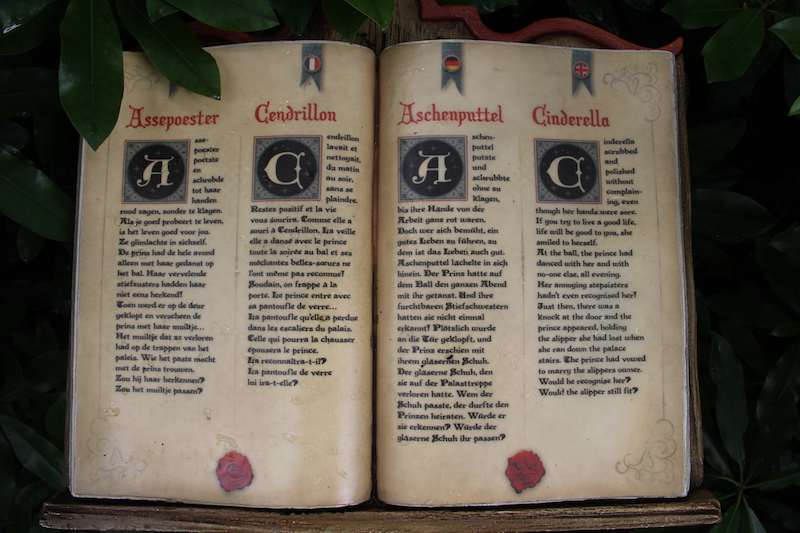 Assepoester
Asse-
poester
poetste
en
schrobde
tot haar
handen
rood zagen, zonder te klagen.
Als je goed probeert te leven,
is het leven goed voor jou.
Ze glimlachte in zichzelf.
De prins had de hele avond
alleen met haar gedanst op
het bal. Haar vervelende
stiefzusters hadden haar
niet eens herkend!
Toen werd er op de deur
geklopt en verscheen de
prins met haar muiltje...
Het muiltje dat ze verloren
had op de trappen van het
paleis. Wie het paste mocht
met de prins trouwen.
Zou hij haar herkennen?
Zou het muiltje passen?
Cendrillon
Cendrillon
lavait et
nettoyait,
du matin
au soir,
sans se
plaindre.
Restez positif et la vie
vous sourira. Comme elle a
souri à Cendrillon. La veille
elle a dansé avec le prince
toute la soirée au bal et ses
méchantes belles-sœurs ne
l'ont même pas reconnue!
Soudain, on frappe à la
porte. Le prince entre avec
sa pantoufle de verre...
La pantoufle qu'elle a perdue
dans les escaliers du palais.
Celle qui pourra la chausser
épousera le prince.
La reconnaîtra-t-il?
La pantoufle de verre
lui ira-t-elle?
Aschenputtel
Aschen-
puttel
putzte
und
schrubbte
ohne zu
klagen,
bis ihre Hände von der
Arbeit ganz rot waren.
Doch wer sich bemüht, ein
gutes Leben zu führen, zu
dem ist das Leben auch gut.
Aschenputtel lächelte in sich
hinein. Der Prinz hatte auf
dem Ball den ganzen Abend
mit ihr getanzt. Und ihre
furchtbaren Stiefschwestern
hatten sie nicht einmal
erkannt! Plötzlich wurde
an die Tür geklopft, und
der Prinz erschien mit
ihrem gläsernen Schuh.
Der gläserne Schuh, den
sie auf der Palasttreppe
verloren hatte. Wem der
Schuh passte, der durfte den
Prinzen heiraten. Würde er
sie erkennen? Würde der
gläserne Schuh ihr passen?
Cinderella
Cinderella
scrubbed
and
polished
without
complain-
ing, even
though her hands were sore.
If you try to live a good life,
life will be good to you, she
smiled to herself.
At the ball, the prince had
danced with her and with
no-one else, all evening.
Her annoying stepsisters
hadn't even recognised her!
Just then, there was a
knock at the door and the
prince appeared, holding
the slipper she had lost when
she ran down the palace
stairs. The prince had vowed
to marry the slippers owner.
Would he recognise her?
Would the slipper still fit?